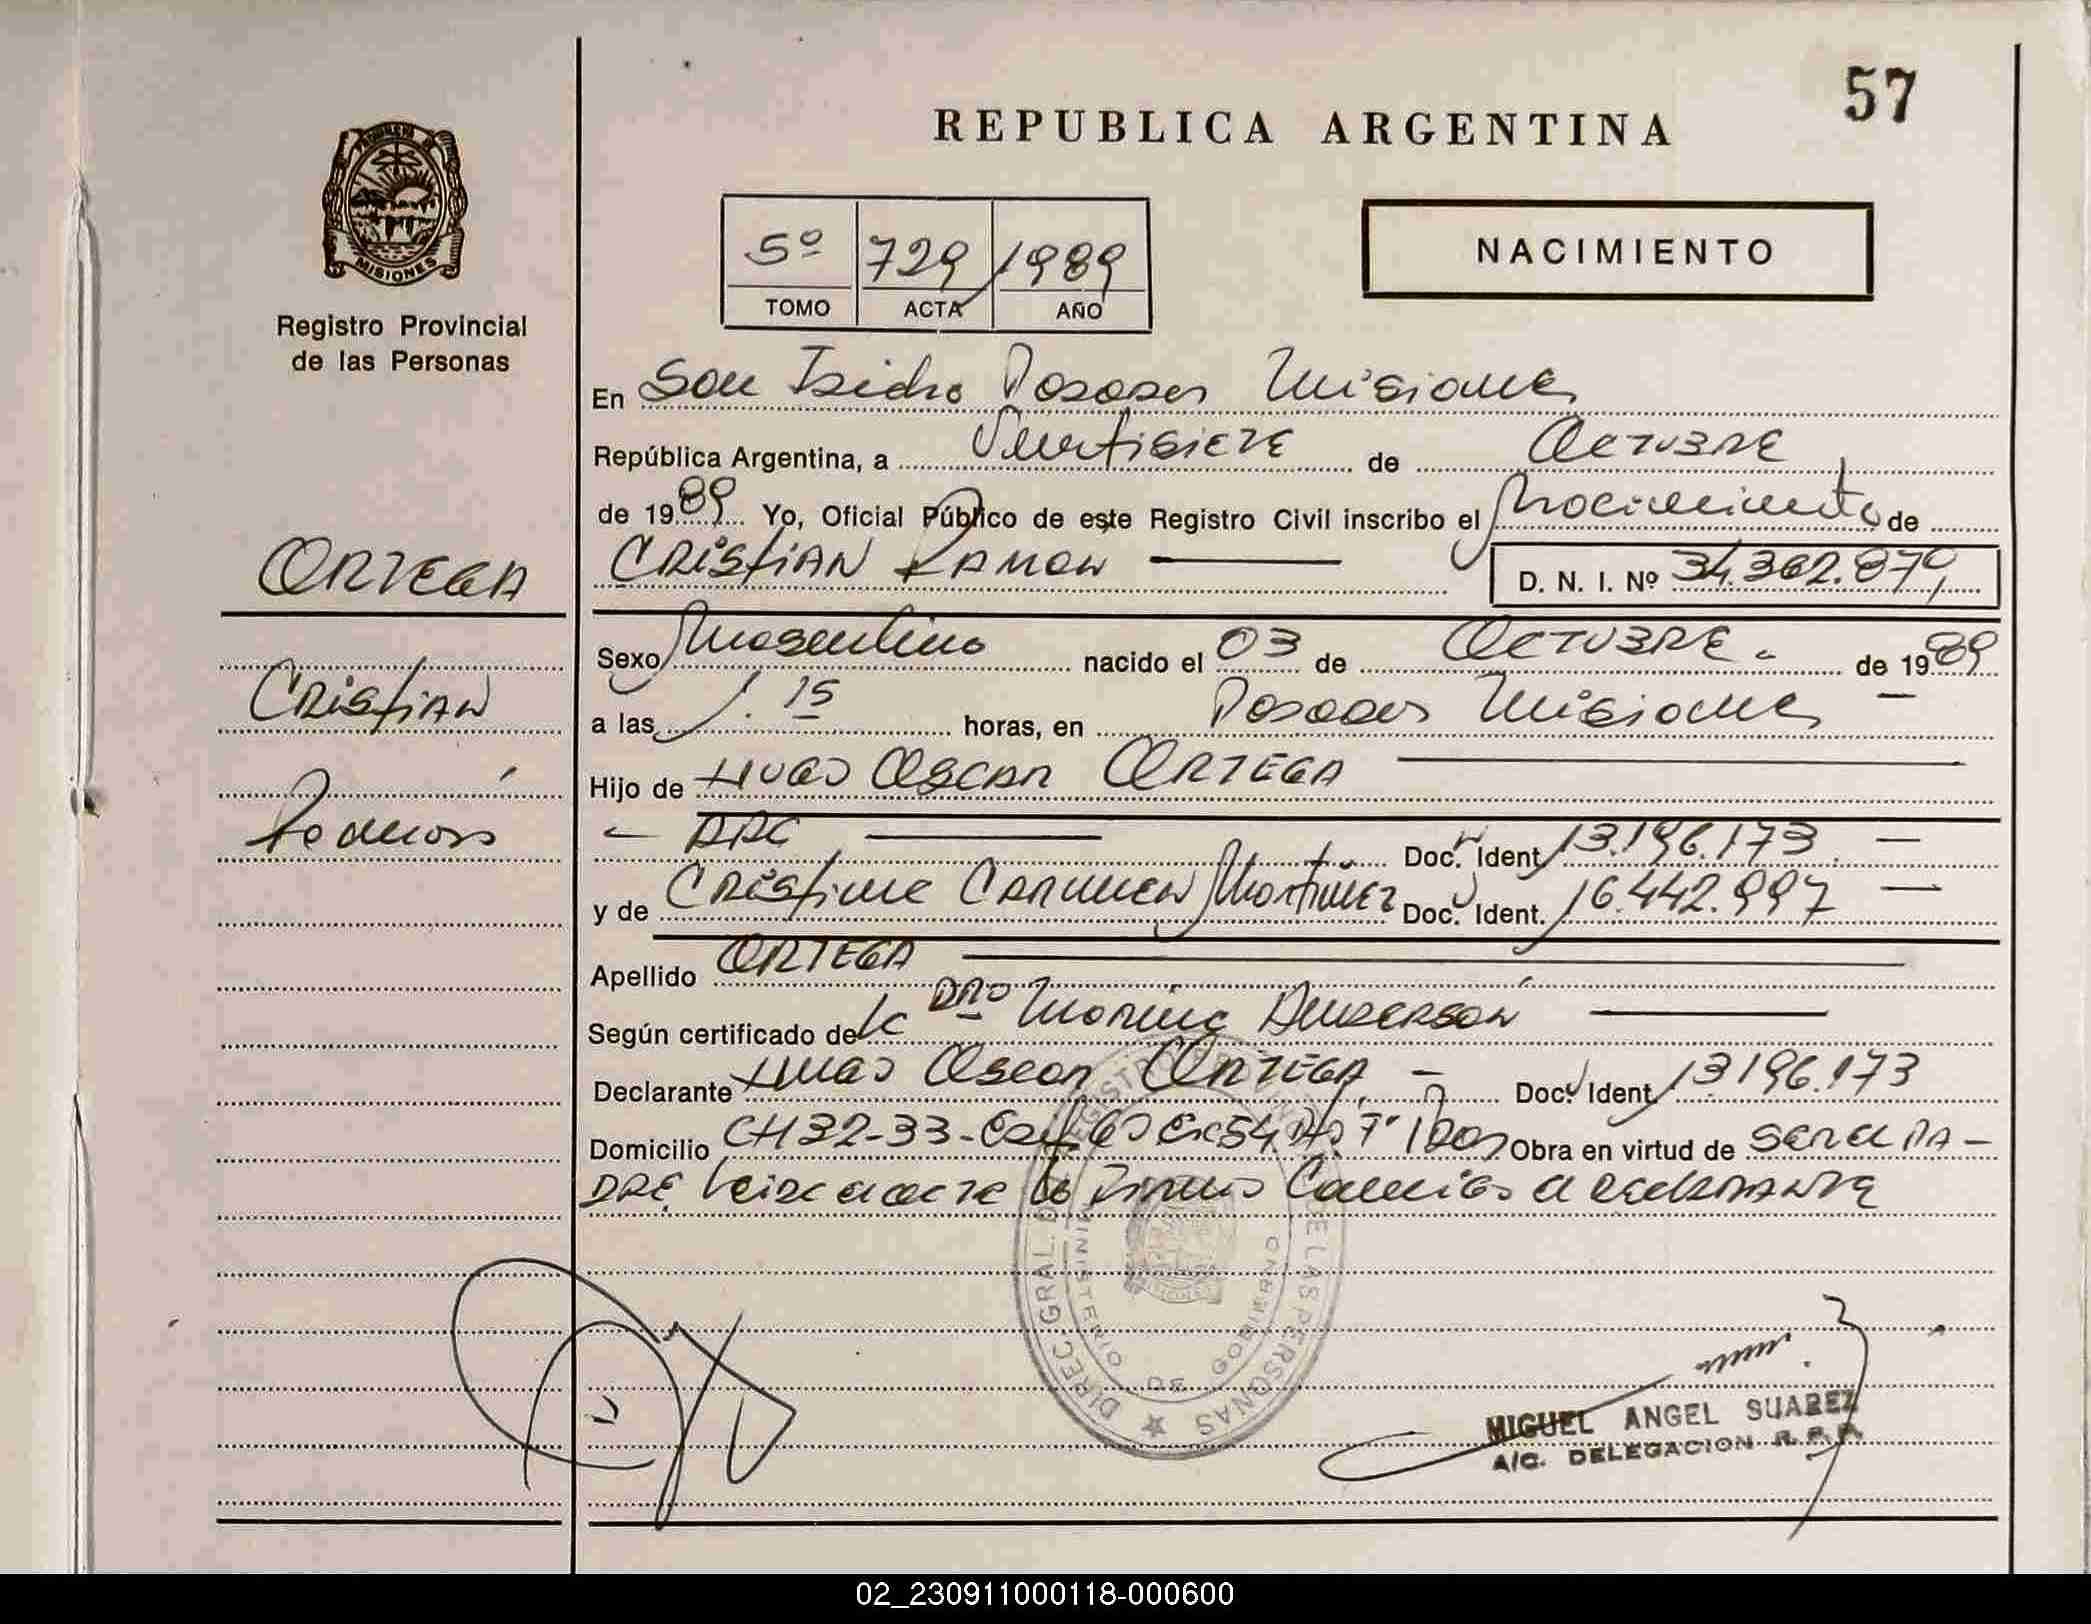 57
REPUBLICA ARGENTINA
MISIONES
Registro Provincial
de las Personas
5º 729 1989
TOMO ACTA AÑO
NACIMIENTO
En San Isidro Posadas Misiones
República Argentina, a Veintisiete de Octubre
de 1989 Yo, Oficial Público de este Registro Civil inscribo el Nacimiento de
ORTEGA
CRISTIAN RAMON
D. N. I. Nº 34.362.879
Sexo Masculino nacido el 03 de OCTUBRE. de 1989
Cristian
a las 1.15 horas, en Posadas Misiones —
Hijo de HUGO OSCAR ORTEGA
Ramón
— ARG — Doc. Ident 13.196.173 —
y de Cristina Carmen Martinez Doc. Ident. 16.442.997 —
Apellido ORTEGA
Según certificado de la DRA Monica Anderson
Declarante Hugo Oscar ORTEGA — Doc. Ident 13196.173
Domicilio CH 32-33- 54 7º Obra en virtud de ser el PA-
DRE la Firma el declarante
DIREC. GRAL. DEL REGISTRO PROVINCIAL DE LAS PERSONAS
MINISTERIO DE GOBIERNO
MIGUEL ANGEL SUAREZ
A/C. DELEGACION R.P.P.
02_230911000118-000600